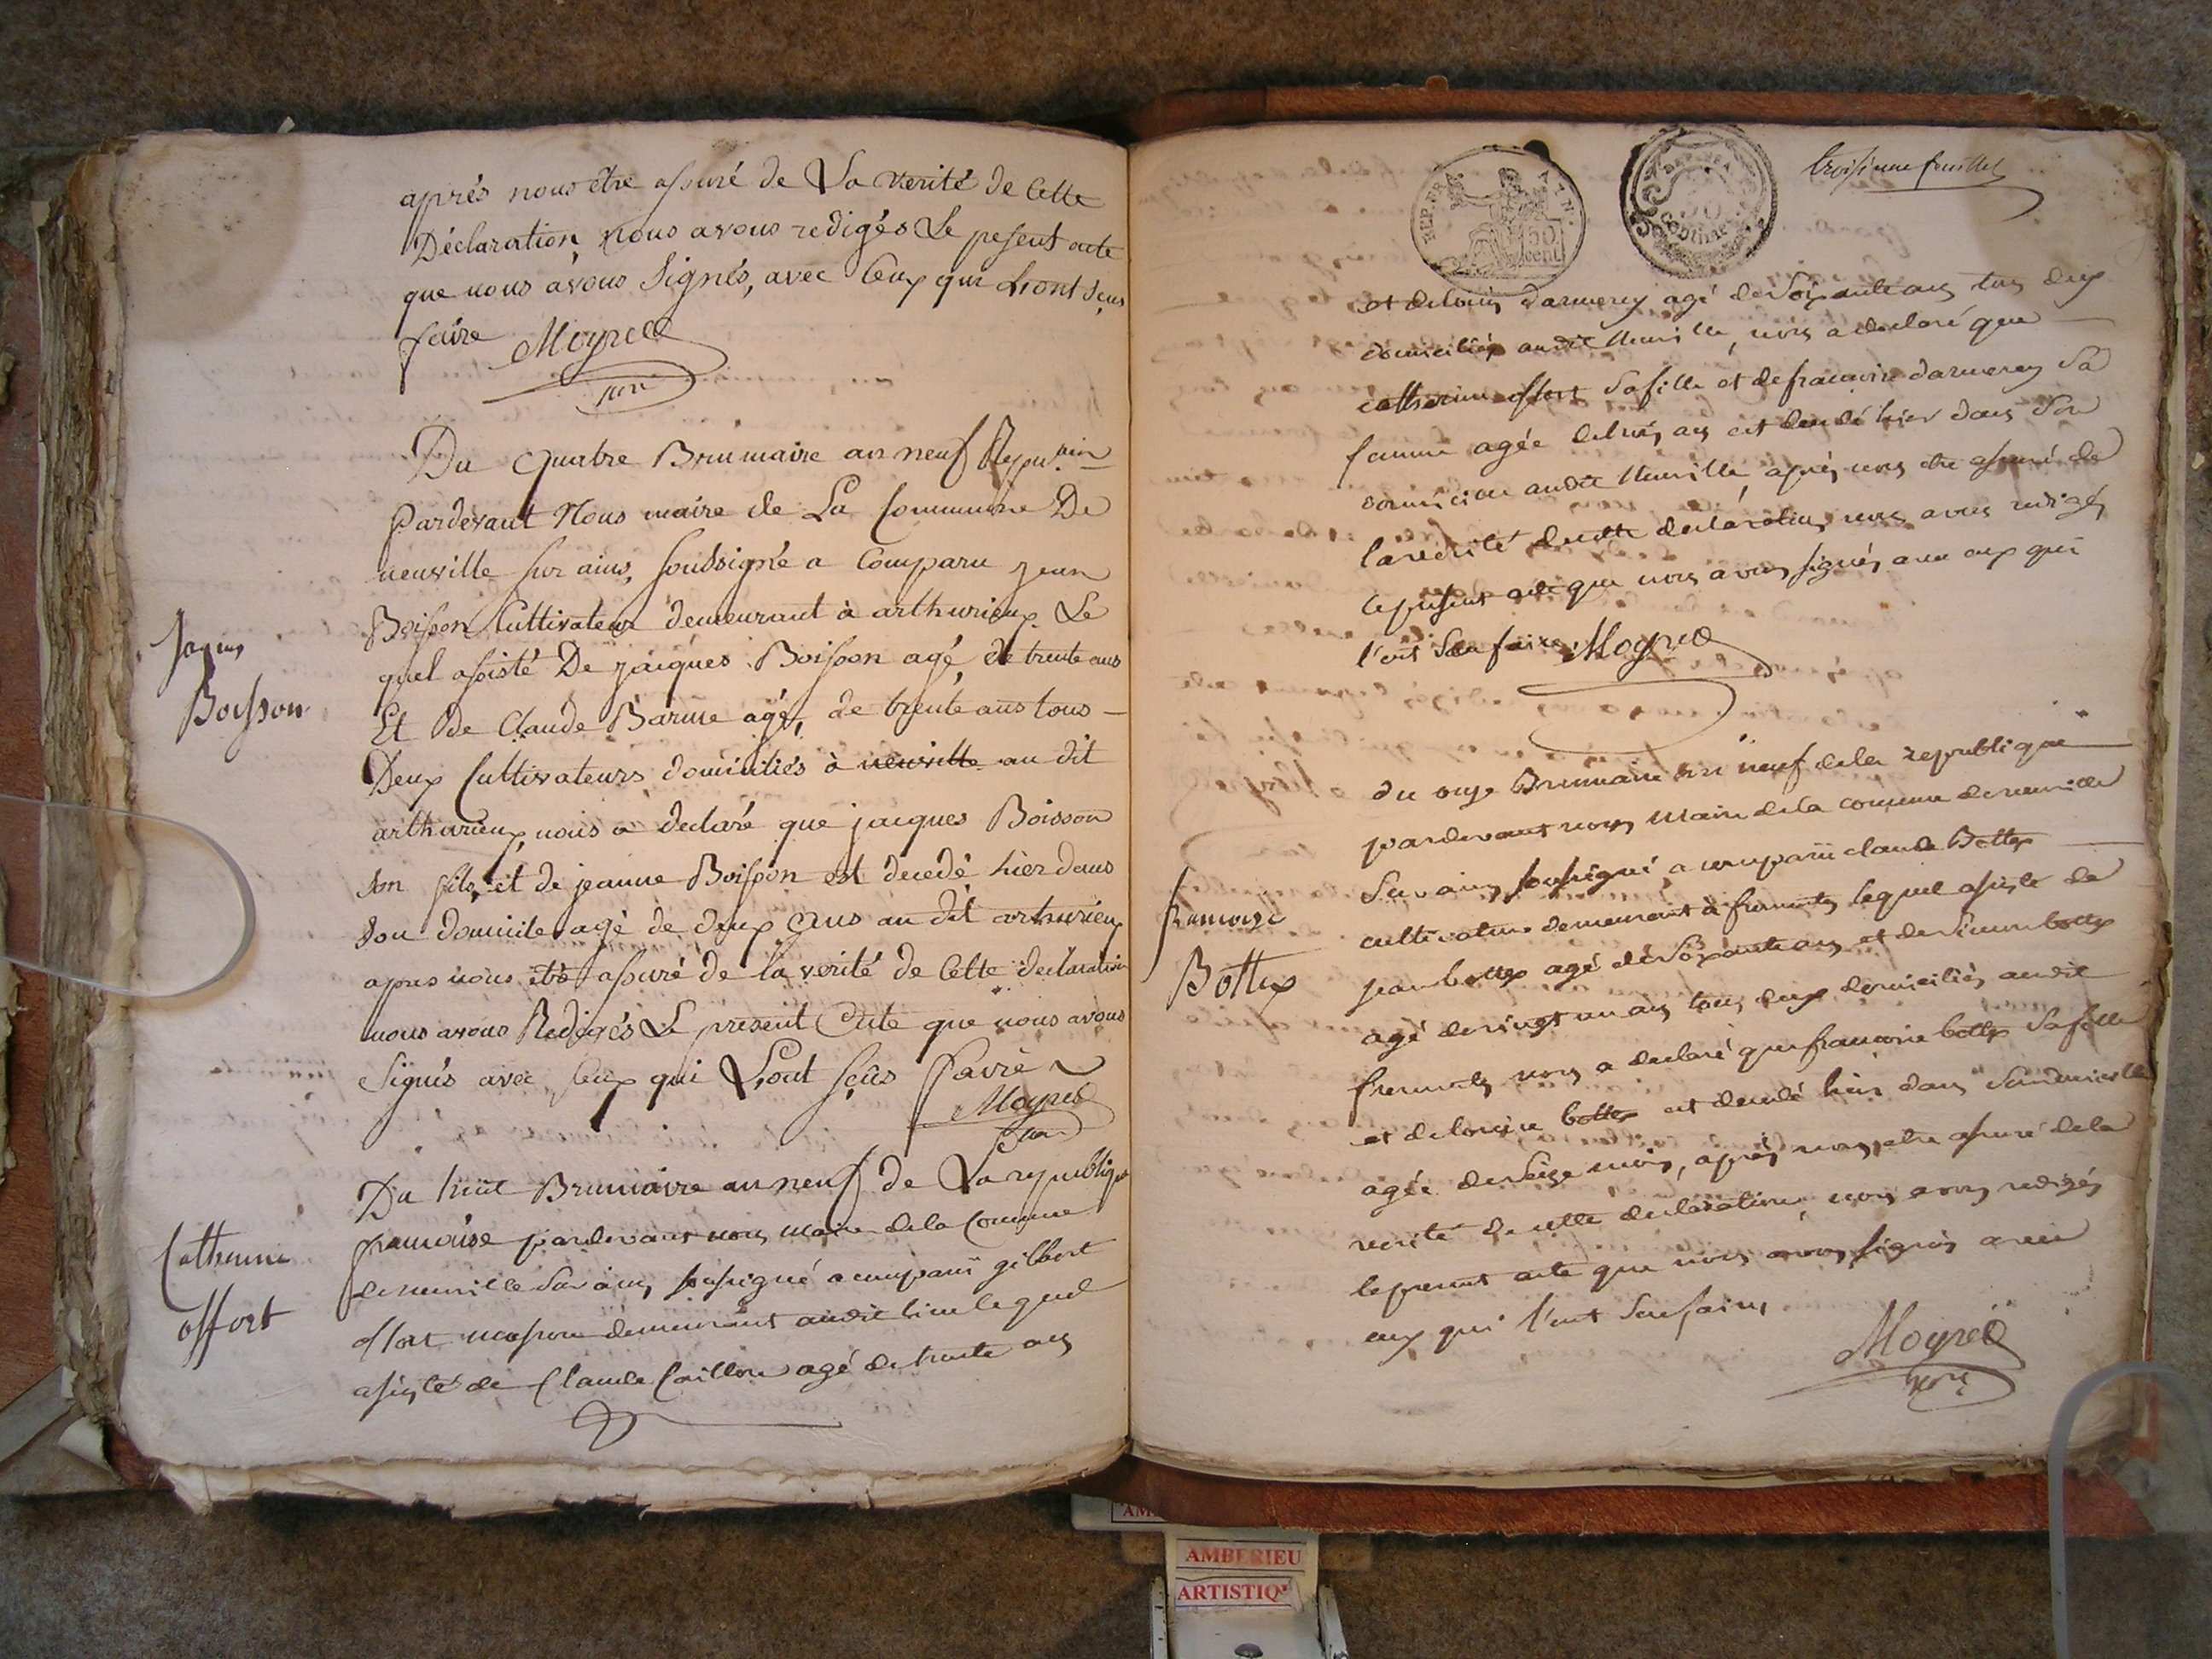 après nous être assuré de La verité de Cette
Déclaration nous avons redigés Le pesent acte
que nous avons Signés, avec Ceux qui L'ont sçus
faire Moyret
Du quatre Brumaire an neuf
Pardevant Nous maire de La Commune De
neuville sur ains, soussigné a Comparu jean
Boisson Cultivateur demeurant à arthurieux Le
quel assisté De jacques Boisson agé de trente ans
Et de Claude Barme agé, de trente ans tous
Deux Cultivateurs domiciliés à neuville au dit
artharieux, nous a declaré que jacques Boisson
son fils, et de jeanne Boisson est decedé hier dans
son domicile agé de deux ans au dit arthurieux
apres nous être assuré de la verité de Cette declaration
nous avons Redigés Le present acte que nous avons
Signés avec Ceux qui L'ont sçûs faire
Moyret
Jacques
Boisson
Du huit Brumaire an neuf de La republique
francoise pardevant nous maire de la Commune
de neuville sur ains, soussigné a comparu gilbert
offort masson demeurant audit lieu lequel
assisté de Claude Caillon agé de trente ans
Catherine
offort
REP. FRA. 50 cent
50 Centimes
troisieme feuillet
et de louis darmerey agé de soixante ans tous deux
domiciliés audit Neuville, nous a declaré que
catherine offort sa fille et de francoise darmerey sa
femme agée de trois ans est decedé hier dans son
domicile audit Neuville après nous etre assuré de
la verité de cette declaration, nous avons redigés
le present acte que nous avons signés avec eux qui
l'ont sceu faire, Moyret
du onze Brumaire an neuf de la republique
pardevant nous Maire de la commune de neuville
sur ains, soussigné a comparu claude Bottex
cultivateur demeurant à fromente lequel assisté de
jean bottex agé de soixante ans et de simon bottex
agé de vingt un ans tous deux domiciliés audit
fromente nous a declaré que francoise bottex sa fille
et de louise bottex est decedé hier dans son domicille
agée de seize mois, après nous etre assuré de la
verité de cette declaration, nous avons redigés
le present acte que nous avons signés avec
eux qui l'ont sceu faire,
Moyret
francoise
Bottex
AMBERIEU
ARTISTIQ